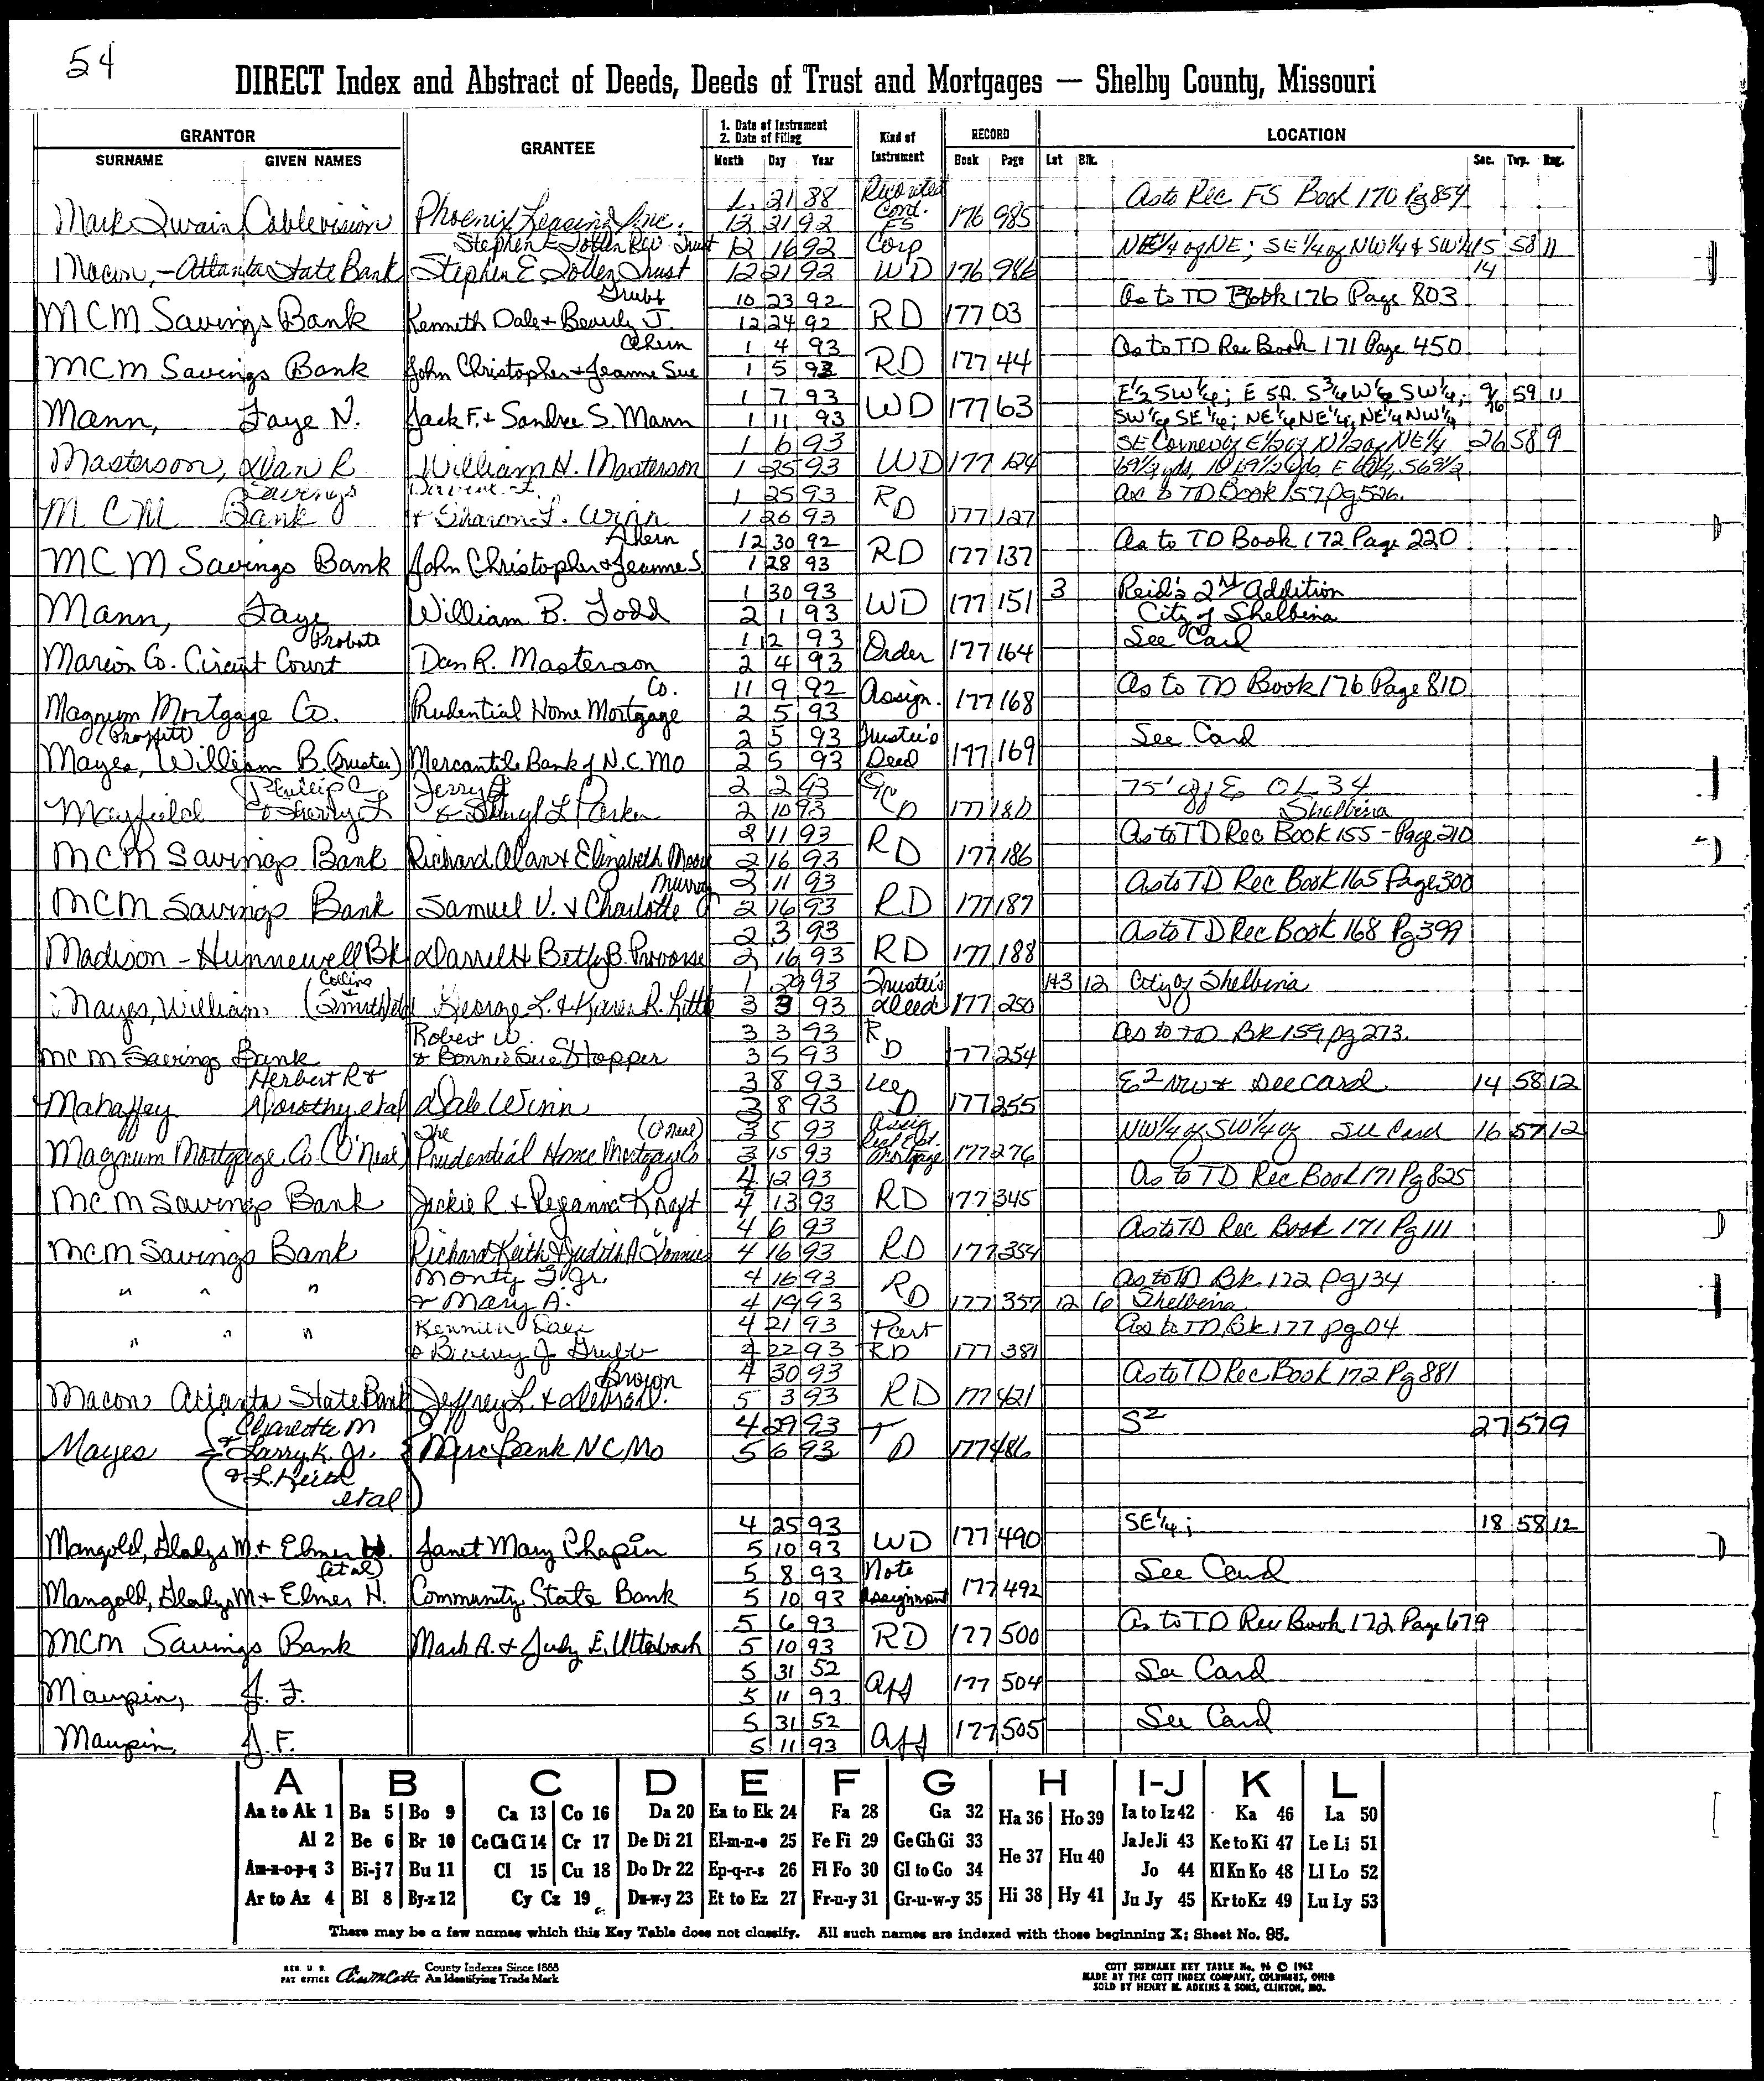 54
DIRECT Index and Abstract of Deeds, Deeds of Trust and Mortgages — Shelby County, Missouri
GRANTOR GRANTEE 1. Date of Instrument 2. Date of Filing Kind of Instrument RECORD LOCATION
SURNAME GIVEN NAMES Month Day Year Book Page Lot Blk. Sec. Twp. Rng.
1 21 88 As to Rec. FS Book 170 Pg 854
Mark Twain Cablevision Phoenix Leasing Inc. 12 21 92 Cont. FS 176 985
Stephen E Totten Rev. Trust 12 16 92 Corp NE1/4 of NE; SE 1/4 of NW 1/4 & SW 1/4 15 58 11
Macon, - Atlanta State Bank Stephen E Totten Trust 12 21 92 WD 176 986 14
Grubb 10 23 92 As to TD Book 176 Page 803
MCM Savings Bank Kenneth Dale + Beverly J. 12 24 92 RD 177 03
Ahern 1 4 93 As to TD Rec Book 171 Page 450
MCM Savings Bank John Christopher + Jeanne Sue 1 5 93 RD 177 44
1 7 93 E 1/2 SW 1/4; E 5A. S 3/4 W 1/2 SW 1/4; 9/16 59 11
Mann, Faye N. Jack F. + Sandra S. Mann 1 11 93 WD 177 63 SW 1/4 SE 1/4; NE 1/4 NE 1/4; NE 1/4 NW 1/4
1 6 93 SE Corner of E 1/2 of N 1/2 of NE 1/4 26 58 9
Masterson, Dan R. William H. Masterson 1 25 93 WD 177 124 69 1/2 yds, N 69 1/2 yds E 69 1/2, S 69 1/2
Savings 1 25 93 RD As to TD Book 157 pg 526.
M C M Bank + Sharon L. Winn 1 26 93 177 127
Ahern 12 30 92 As to TD Book 172 Page 220
MCM Savings Bank John Christopher & Jeanne S. 1 28 93 RD 177 137
1 30 93 3 Reid's 2nd Addition
Mann, Faye William B. Todd 2 1 93 WD 177 151 City of Shelbina
Probate 1 12 93 See Card
Marion Co. Circuit Court Dan R. Masterson 2 4 93 Order 177 164
Co. 11 9 92 As to TD Book 176 Page 810
Magnum Mortgage Co. Prudential Home Mortgage 2 5 93 Assign. 177 168
(Proffitt) 2 5 93 Trustee's See Card
Mayes, William B. (Trustee) Mercantile Bank of N.C. MO 2 5 93 Deed 177 169
Phillip C. Jerry J 2 2 93 75' off E OL 34
Mayfield & Sherry L & Sheryl L Parker 2 10 93 D 177 180 Shelbina
2 11 93 As to TD Rec Book 155 - Page 210
MCM Savings Bank Richard Alan + Elizabeth Moore 2 16 93 RD 177 186
Murray 2 11 93 As to TD Rec Book 165 Page 300
MCM Savings Bank Samuel V. + Charlotte J 2 16 93 RD 177 187
2 3 93 As to TD Rec Book 168 Pg 399
Madison - Hunnewell Bk Darrell + Betty B. Provorse 2 16 93 RD 177 188
Collins 1 29 93 Trustee's H3 12 City of Shelbina
Mayes, William (Smith) George L. & Karen R. Little 3 3 93 Deed 177 250
Robert W. 3 3 93 R As to TD Bk 159 pg 273.
MCM Savings Bank & Bonnie Sue Hopper 3 5 93 D 177 254
Herbert R & 3 8 93 E2 NW & See card 14 58 12
Mahaffey Dorothy etal Dale Winn 3 8 93 D 177 255
The (O'Neal) 3 5 93 Assig NW 1/4 of SW 1/4 of See Card 16 57 12
Magnum Mortgage Co. (O'Neal) Prudential Home Mortgage Co 3 15 93 Real Est. Mortgage 177 276
4 12 93 As to TD Rec Book 171 Pg 825
MCM Savings Bank Jackie R + Reganna Kraft 4 13 93 RD 177 345
4 6 93 As to TD Rec Book 171 Pg 111
MCM Savings Bank Richard Keith & Judith A 4 16 93 RD 177 354
" " " Monty F Jr. 4 16 93 As to TD Bk 172 pg 134
& Mary A. 4 19 93 RD 177 357 12 6 Shelbina
" " " Kenneth Dale 4 21 93 Part As to TD Bk 177 pg 04
& Beverly J Grubb 4 22 93 RD 177 381
Brown 4 30 93 As to TD Rec Book 172 Pg 881
Macon Atlanta State Bank Jeffrey L. & Debra D. 5 3 93 RD 177 421
& Charlotte M 4 29 93 T S2 27 57 9
Mayes Larry K. Jr. Merc Bank NC Mo 5 6 93 D 177 486
& L. Keith
etal
4 25 93 SE 1/4; 18 58 12
Mangold, Gladys M. + Elmer H. Janet Mary Chapin 5 10 93 WD 177 490
(et al) 5 8 93 Note See Card
Mangold, Gladys M + Elmer H. Community State Bank 5 10 93 Assignment 177 492
5 6 93 As to TD Rec Book 172 Page 679
MCM Savings Bank Mark A. + Judy E. Utterback 5 10 93 RD 177 500
5 31 52 See Card
Maupin, J. F. 5 11 93 Aff 177 504
5 31 52 See Card
Maupin, J. F. 5 11 93 Aff 177 505
A B C D E F G H I-J K L
Aa to Ak 1 Ba 5 Bo 9 Ca 13 Co 16 Da 20 Ea to Ek 24 Fa 28 Ga 32 Ha 36 Ho 39 Ia to Iz 42 Ka 46 La 50
Al 2 Be 6 Br 10 Ce Ch Ci 14 Cr 17 De Di 21 El-m-n-o 25 Fe Fi 29 Ge Gh Gi 33 He 37 Hu 40 Ja Je Ji 43 Ke to Ki 47 Le Li 51
Am-n-o-p-q 3 Bi-j 7 Bu 11 Cl 15 Cu 18 Do Dr 22 Ep-q-r-s 26 Fl Fo 30 Gl to Go 34 Jo 44 Kl Kn Ko 48 Ll Lo 52
Ar to Az 4 Bl 8 By-z 12 Cy Cz 19 Du-w-y 23 Et to Ez 27 Fr-u-y 31 Gr-u-w-y 35 Hi 38 Hy 41 Ju Jy 45 Kr to Kz 49 Lu Ly 53
There may be a few names which this Key Table does not classify. All such names are indexed with those beginning X; Sheet No. 95.
REG. U. S. PAT OFFICE County Indexes Since 1888 An Identifying Trade Mark
COTT SURNAME KEY TABLE No. 96 © 1962
MADE BY THE COTT INDEX COMPANY, COLUMBUS, OHIO
SOLD BY HENRY M. ADKINS & SONS, CLINTON, MO.